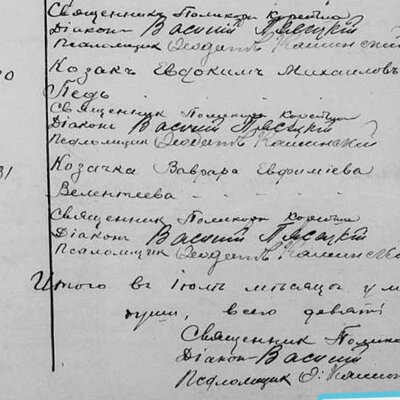 Священникъ Поликарп Корейша
Діаконъ Василій Пясецкій
Псаломщикъ Ѳеодотъ Кашинскій
30 Козакъ Евдокимъ Михаиловъ
Педь
Священник Поликарп Корейша
Діаконъ Василій Пясецкій
Псаломщикъ Ѳеодотъ Кашинскій
31 Козачка Варвара Евфиміева
Велентеева
Священник Поликарп Корейша
Діаконъ Василій Пясецкій
Псаломщикъ Ѳеодотъ
Итого въ Іюлѣ мѣсяцѣ ум
души, всего девять
Священник Полика
Діаконъ Василій
Псаломщик Ѳ.